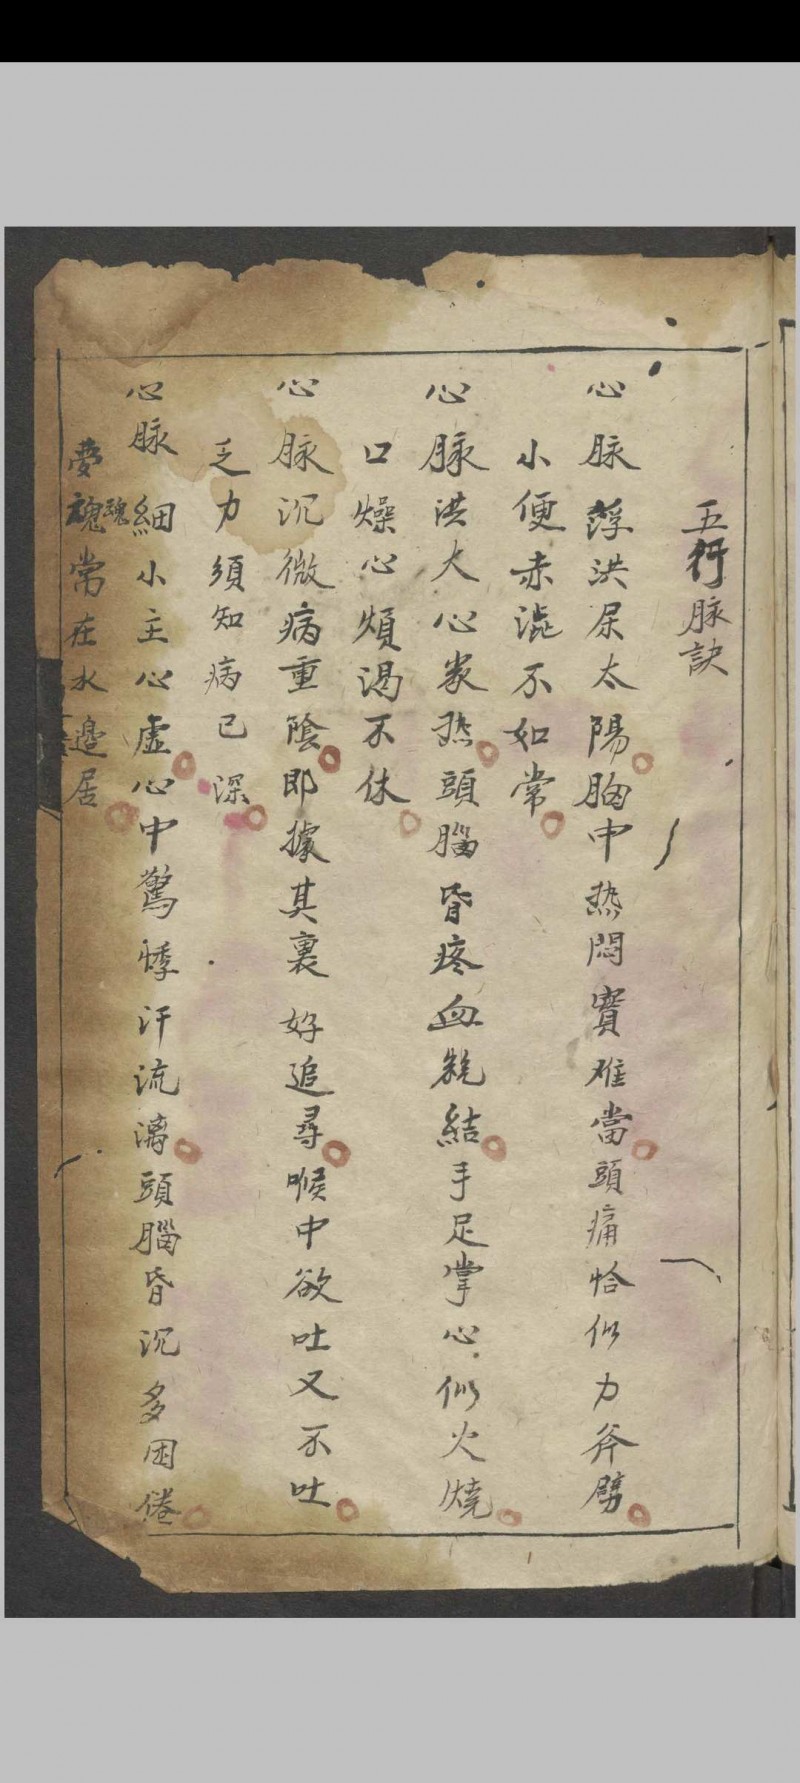 五行脉訣
心脉浮洪尿太陽胸中热悶實难當頭痛恰似力斧劈
小便赤澁不如常
心脉洪大心家热頭腦昏疼血結手足掌心似火燒
口燥心煩渴不休
心脉沉微病重陰即據其裏好追尋喉中欲吐又不吐
乏力須知病已深
心脉細小主心虛心中驚悸汗流漓頭腦昏沉多困倦
夢魂魂常在水邉居